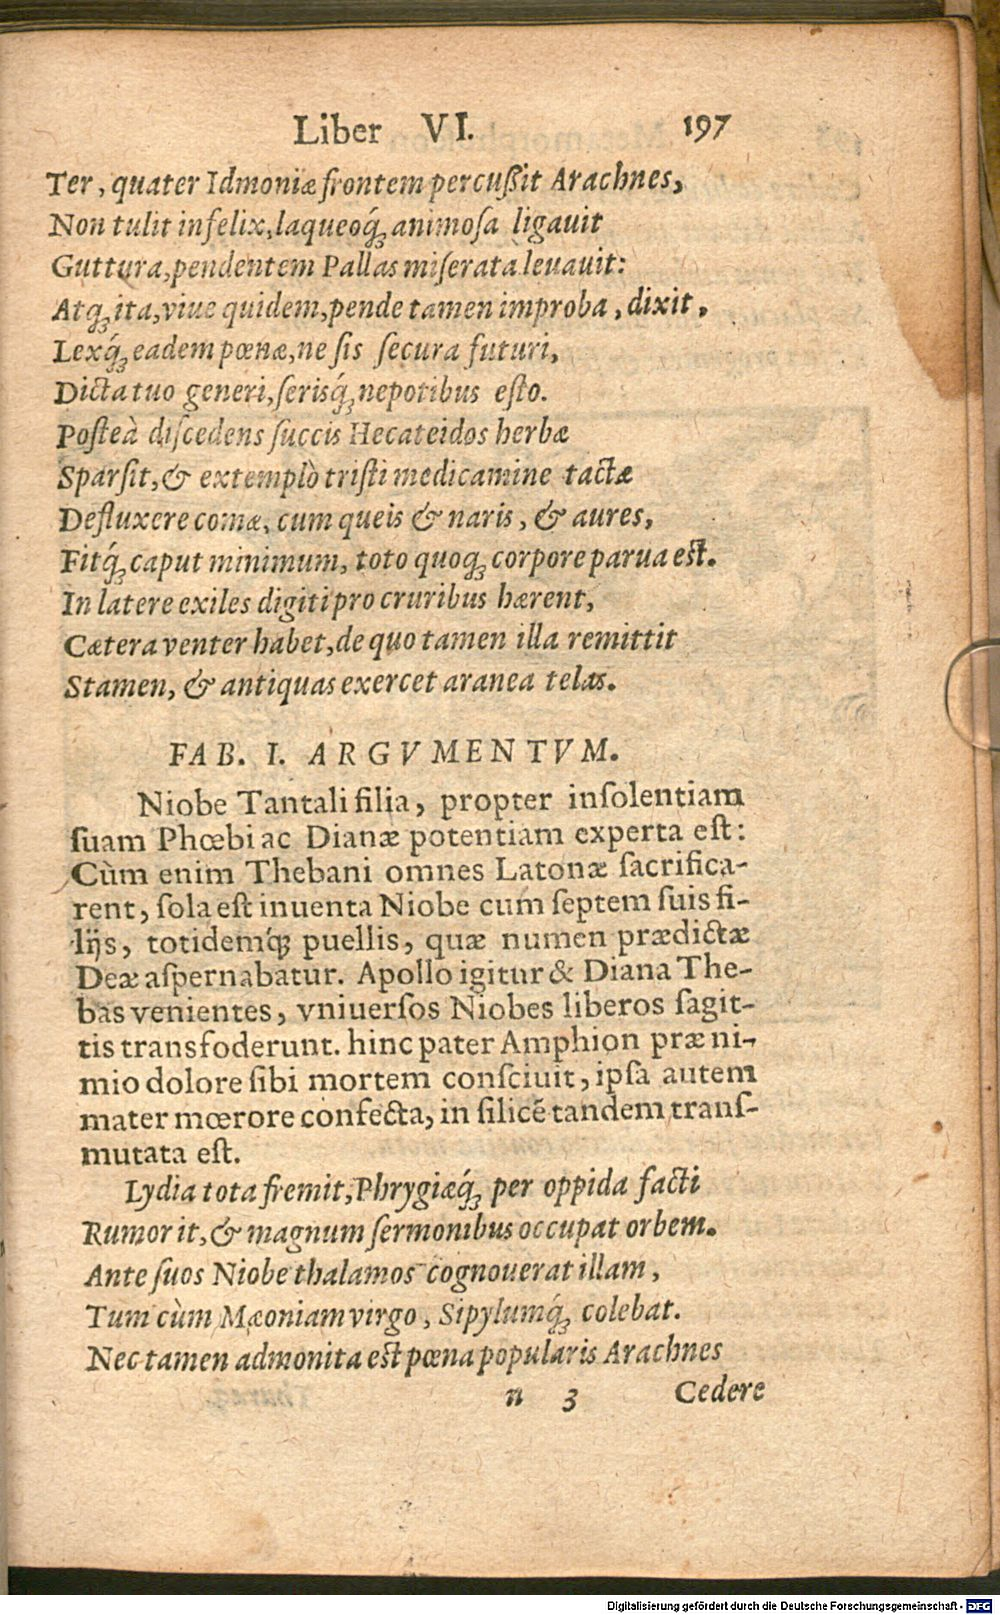 Liber VI. 197
Ter, quater Idmoniæ frontem percußit Arachnes,
Non tulit infelix, laqueoq́; animoſa ligauit
Guttura, pendentem Pallas miſerata leuauit:
Atq; ita, viue quidem, pende tamen improba, dixit,
Lexq́; eadem pœnæ, ne ſis ſecura futuri,
Dicta tuo generi, ſerisq́; nepotibus eſto.
Poſteà diſcedens ſuccis Hecateidos herbæ
Sparſit, & extemplò triſti medicamine tactæ
Defluxere comæ, cum queis & naris, & aures,
Fitq́; caput minimum, toto quoq; corpore parua eſt.
In latere exiles digiti pro cruribus hærent,
Cætera venter habet, de quo tamen illa remittit
Stamen, & antiquas exercet aranea telas.
FAB. I. ARGVMENTVM.
Niobe Tantali filia, propter inſolentiam
ſuam Phœbi ac Dianæ potentiam experta eſt:
Cùm enim Thebani omnes Latonæ ſacrifica-
rent, ſola eſt inuenta Niobe cum ſeptem ſuis fi-
lijs, totidemq́; puellis, quæ numen prædictæ
Deæ aſpernabatur. Apollo igitur & Diana The-
bas venientes, vniuerſos Niobes liberos ſagit-
tis transfoderunt. hinc pater Amphion præ ni-
mio dolore ſibi mortem conſciuit, ipſa autem
mater mœrore confecta, in ſilicē tandem tranſ-
mutata eſt.
Lydia tota fremit, Phrygiæq́; per oppida facti
Rumor it, & magnum ſermonibus occupat orbem.
Ante ſuos Niobe thalamos cognouerat illam,
Tum cùm Mæoniam virgo, Sipylumq́; colebat.
Nec tamen admonita eſt pœna popularis Arachnes
n 3 Cedere
Digitalisierung gefördert durch die Deutsche Forschungsgemeinschaft - DFG